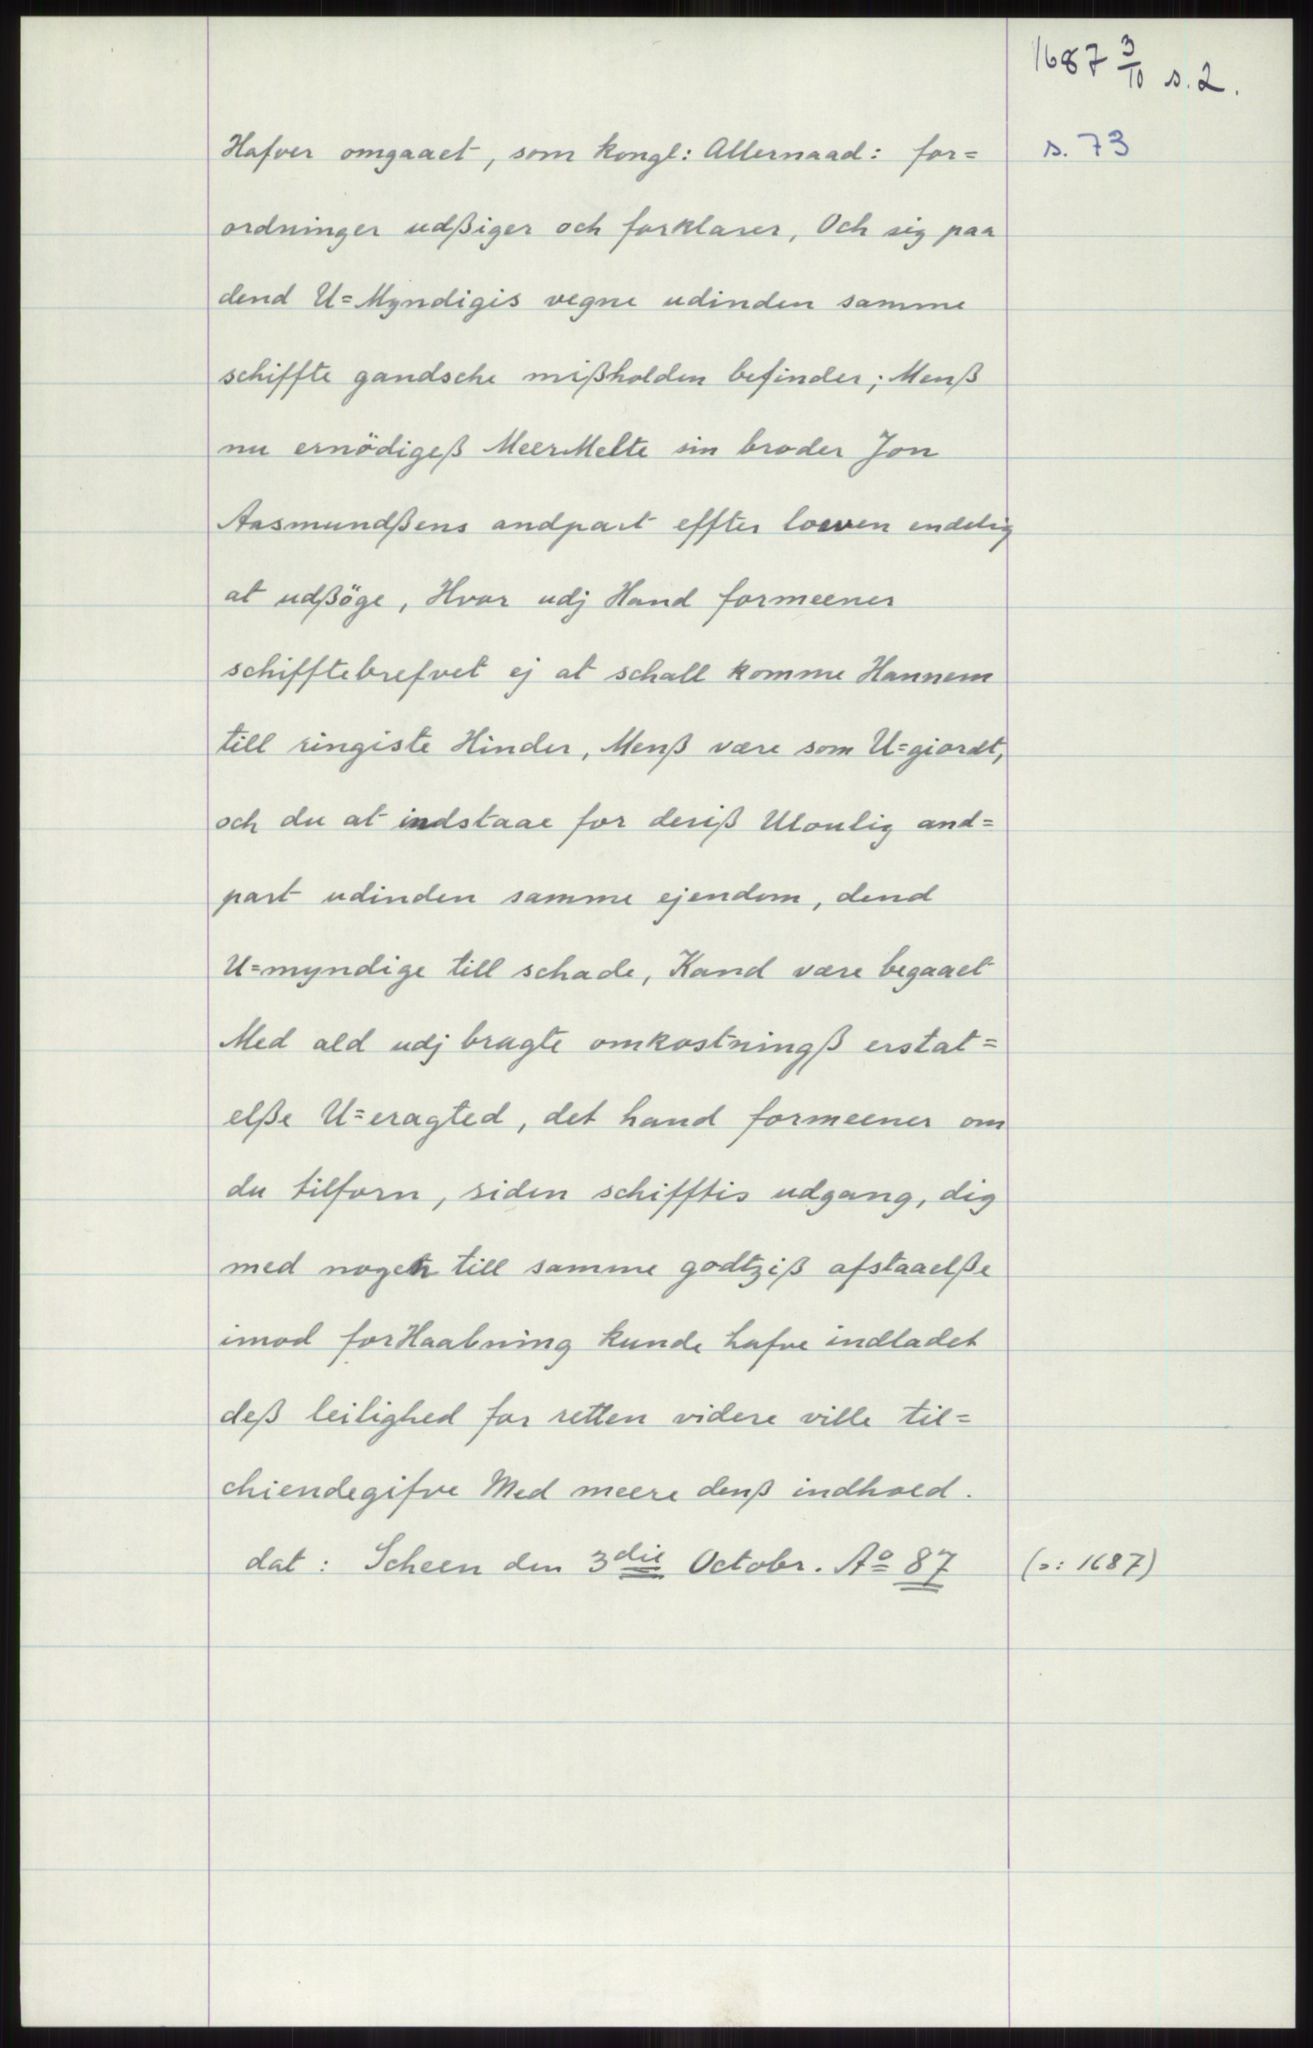 1687 3/10 s. 2.
s. 73
Hafver omgaaet, som kongl: Allernaad: for=
ordninger udßiger och forklarer, Och sig paa
dend U=Myndigis vegne udinden samme
schiffte gandsche mißholden befinder; Menß
nu ernödigeß MeerMelte sin broder Jon
Aasmundßens andpart effter loeven endelig
at udßöge, Hvor udj Hand formeener
schifftebrefvet ej at schall komme Hannem
till ringiste Hinder, Menß være som U=giordt,
och du at indstaae for deriß Uloulig and=
part udinden samme ejendom, dend
U=myndige till schade, Kand være begaaet
Med ald udj bragte omkostningß erstat=
elße U=eragted, det hand formeener om
du tilforn, siden schifftis udgang, dig
med nogen till samme godtziß afstaaelße
imod forHaabning kunde hafve indladet
deß leilighed for retten videre ville til=
chiendegifve Med meere denß indhold.
dat: Scheen den 3die Octobr. Aº 87
(ɔ: 1687)